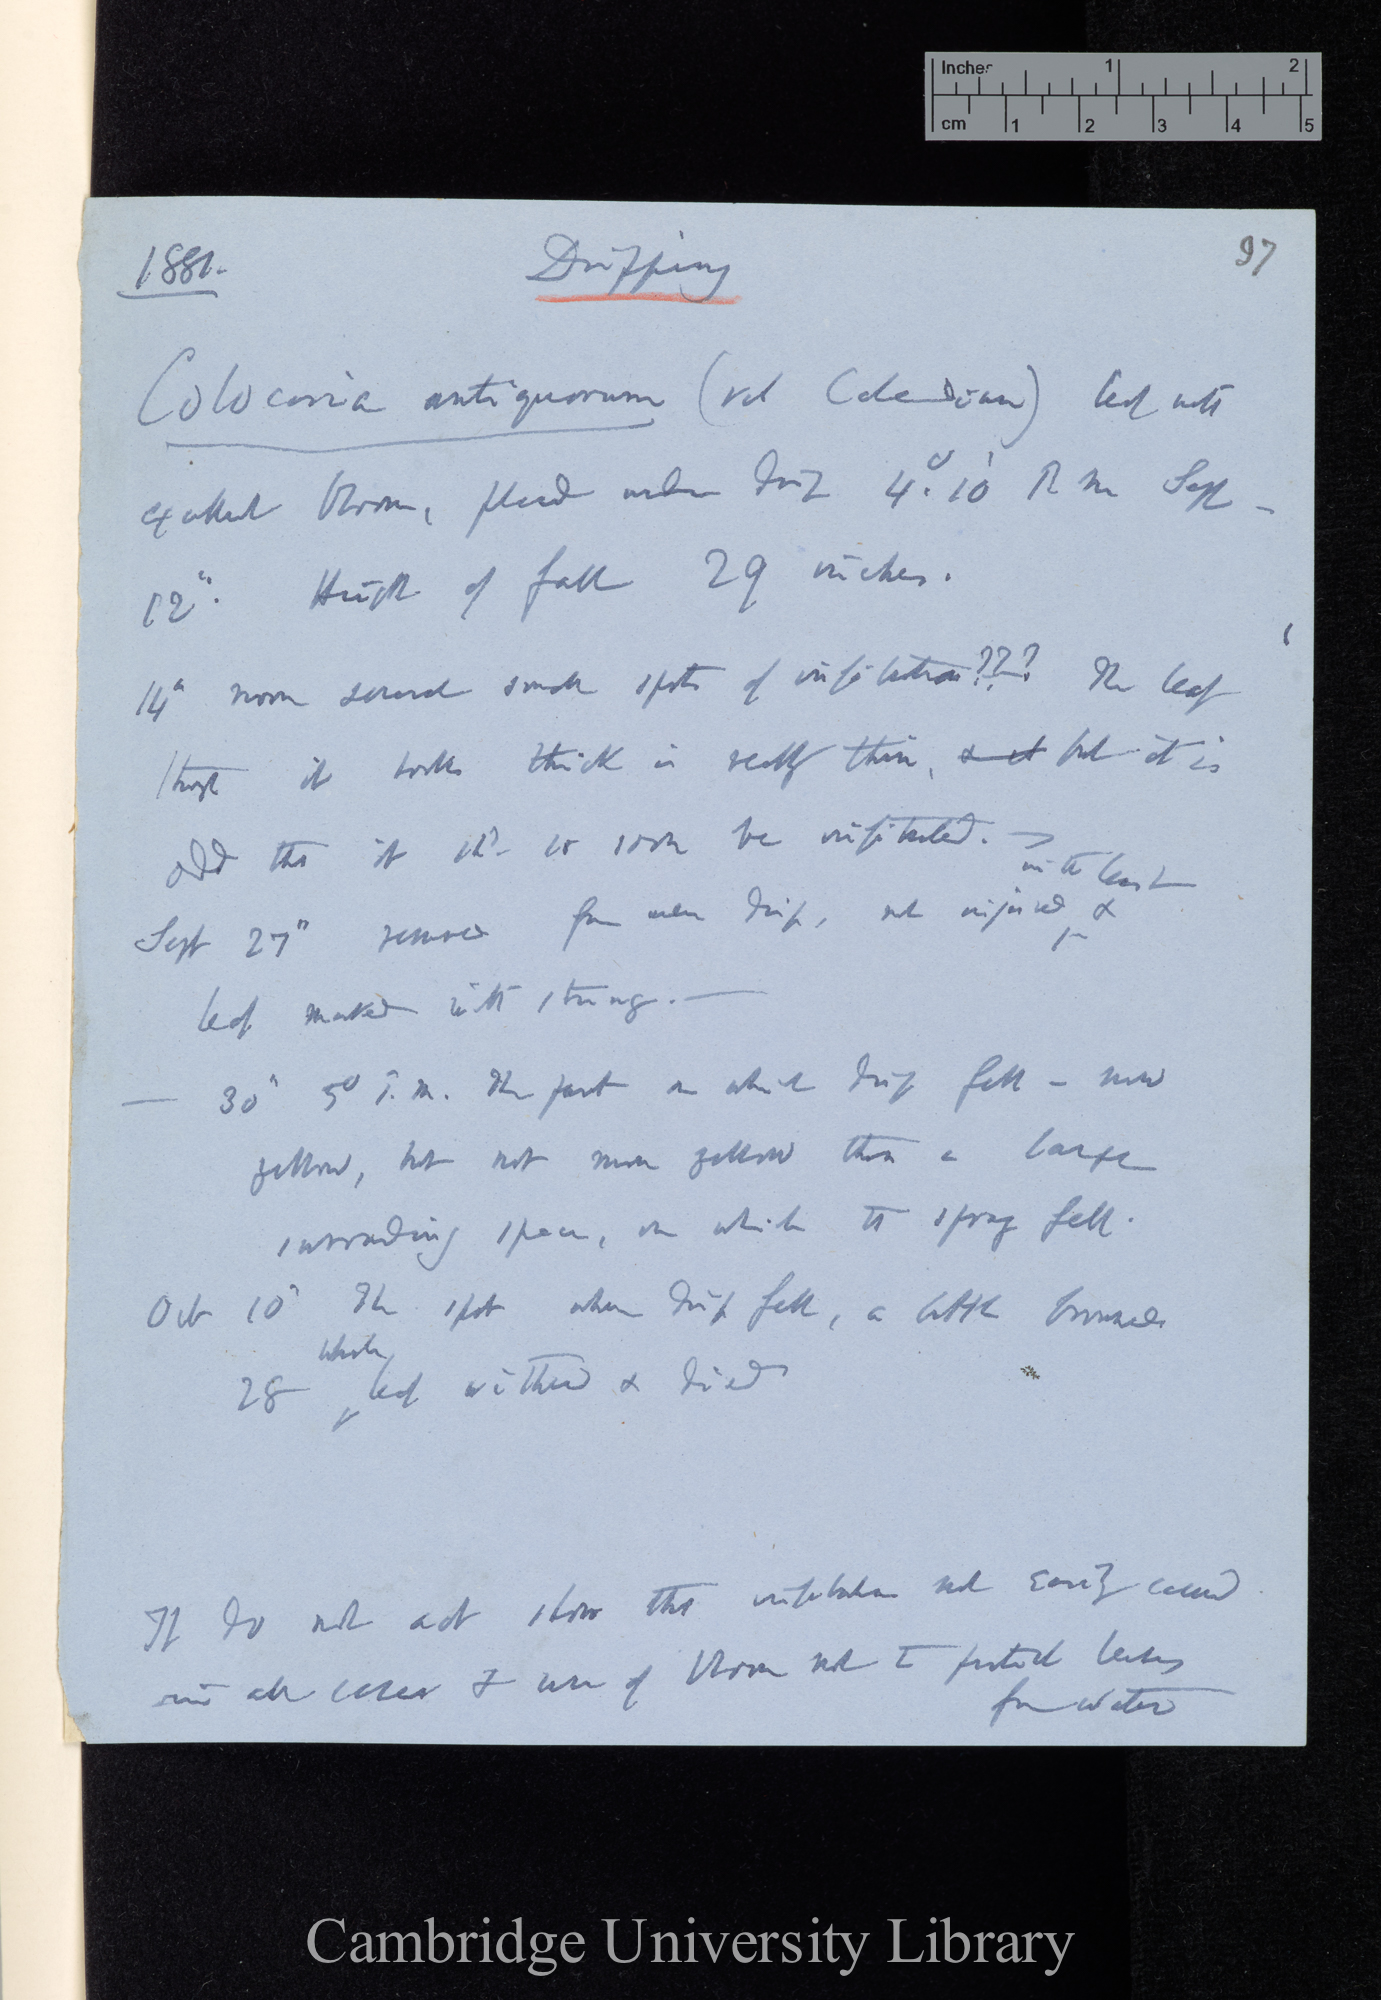 Inches 1 2
cm 1 2 3 4 5
97
1881.
Dripping
Colocasia antiquorum (vel Caladium) leaf with
excellent bloom, placed under drip 4° 10' P.m Sept
12". Height of fall 29 inches.
14" noon several small spots of infiltration??? The leaf
though it looks thick is really thin, & it but it is
odd that it shd so soon be infiltrated.
in the least
Sept 27" removed from under drip, not injured &
leaf marked with string. —
— 30" 5° P.m. The part on which drip fell – now
yellow, but not more yellow than a large
surrounding space, on which the spray fell.
Oct 10" The spot where drip fell, a little browned
whole
28 leaf withered & died
If do not act show that infiltration not easily caused
in all cases & use of bloom not to protect leaves
from water
Cambridge University Library